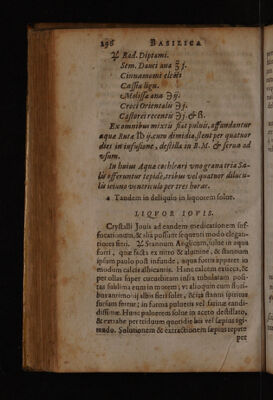 196 BASILICA
℞ Rad. Diptami.
Sem. Dauci ana ʒ j.
Cinnamomi electi
Cassiæ lign.
Melissa ana ℈ ij.
Croci Orientalis ℈ j.
Castorei recentis ℈ j. & ß.
Ex omnibus mixtis fiat puluis, affundantur
aquæ Rutæ ℔ ij. cum dimidia, stent per quatuor
dies in infusione, destilla in B. M. & serua ad
vsum.
In huius Aqua cochleari vno grana tria Sa-
lis offeruntur tepidè, tribus vel quatuor dilucu-
lis ieiuno ventriculo per tres horas.
Tandem in deliquio in liquorem solue.
LIQVOR IOVIS.
Crystalli Iouis ad eandem medicationem suf-
focationum, & alia possunt sequenti modo elegan-
tiores fieri. ℞ Stannum Anglicum, solue in aqua
forti, quæ facta ex nitro & alumine, & stannum
ipsum paulò post infunde, aqua fortis apparet in
modum calcis albicantis. Hanc calcem exicca, &
per ollas super cucurbitam infra tubulatam posi-
tas sublima cum in morem; vt alioquin cum
antimonij albis fieri solet, & ita stanni spiritus
sursum feretur; in forma pulueris vel farinæ candi-
dissimæ. Hunc puluerem solue in aceto destillato,
& extrahe per triduum quotidie bis vel sæpius agi-
tando. Solutionem & extractionem sæpius repete
per